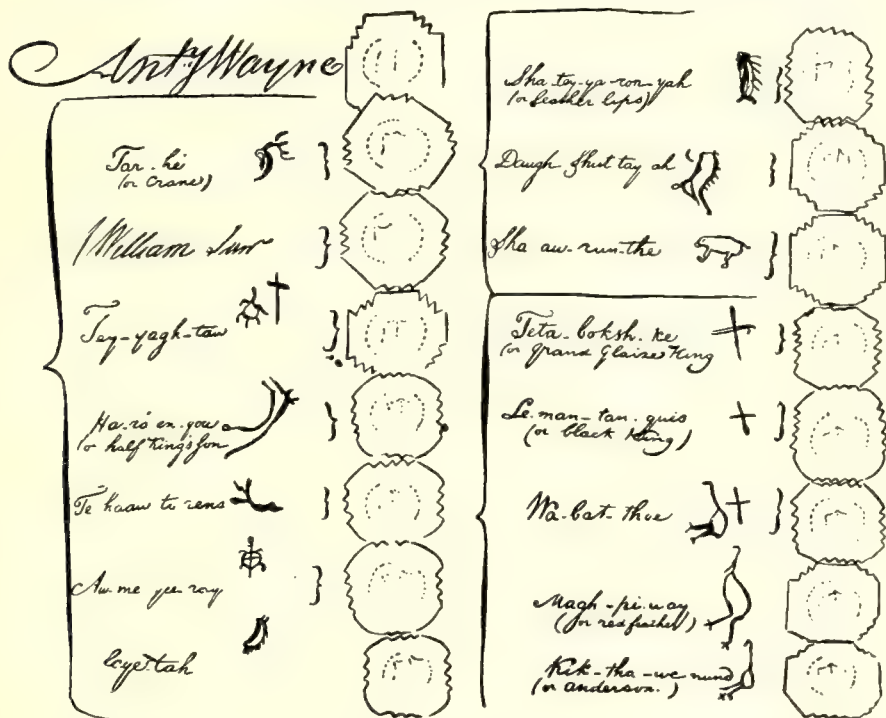 Anty Wayne
Tar-hé
(or Crane)
J William Sur
Tey-yagh-taw
Ha-ró en-you
(or half King's Son
Te haaw to rens
Aw-me yee-ray
Saye-tah
Sha-tey-ya-ron-yah
(or leather lips)
Daugh Shut tay ah
Sha aw-run-the
Teta-boksh-ke
(or Grand Glaize King
Le-man-tan-quis
(or black King)
Wa-bat-thoe
Magh-pi-way
(or red feather)
Kik-tha-we nund
(or anderson.)